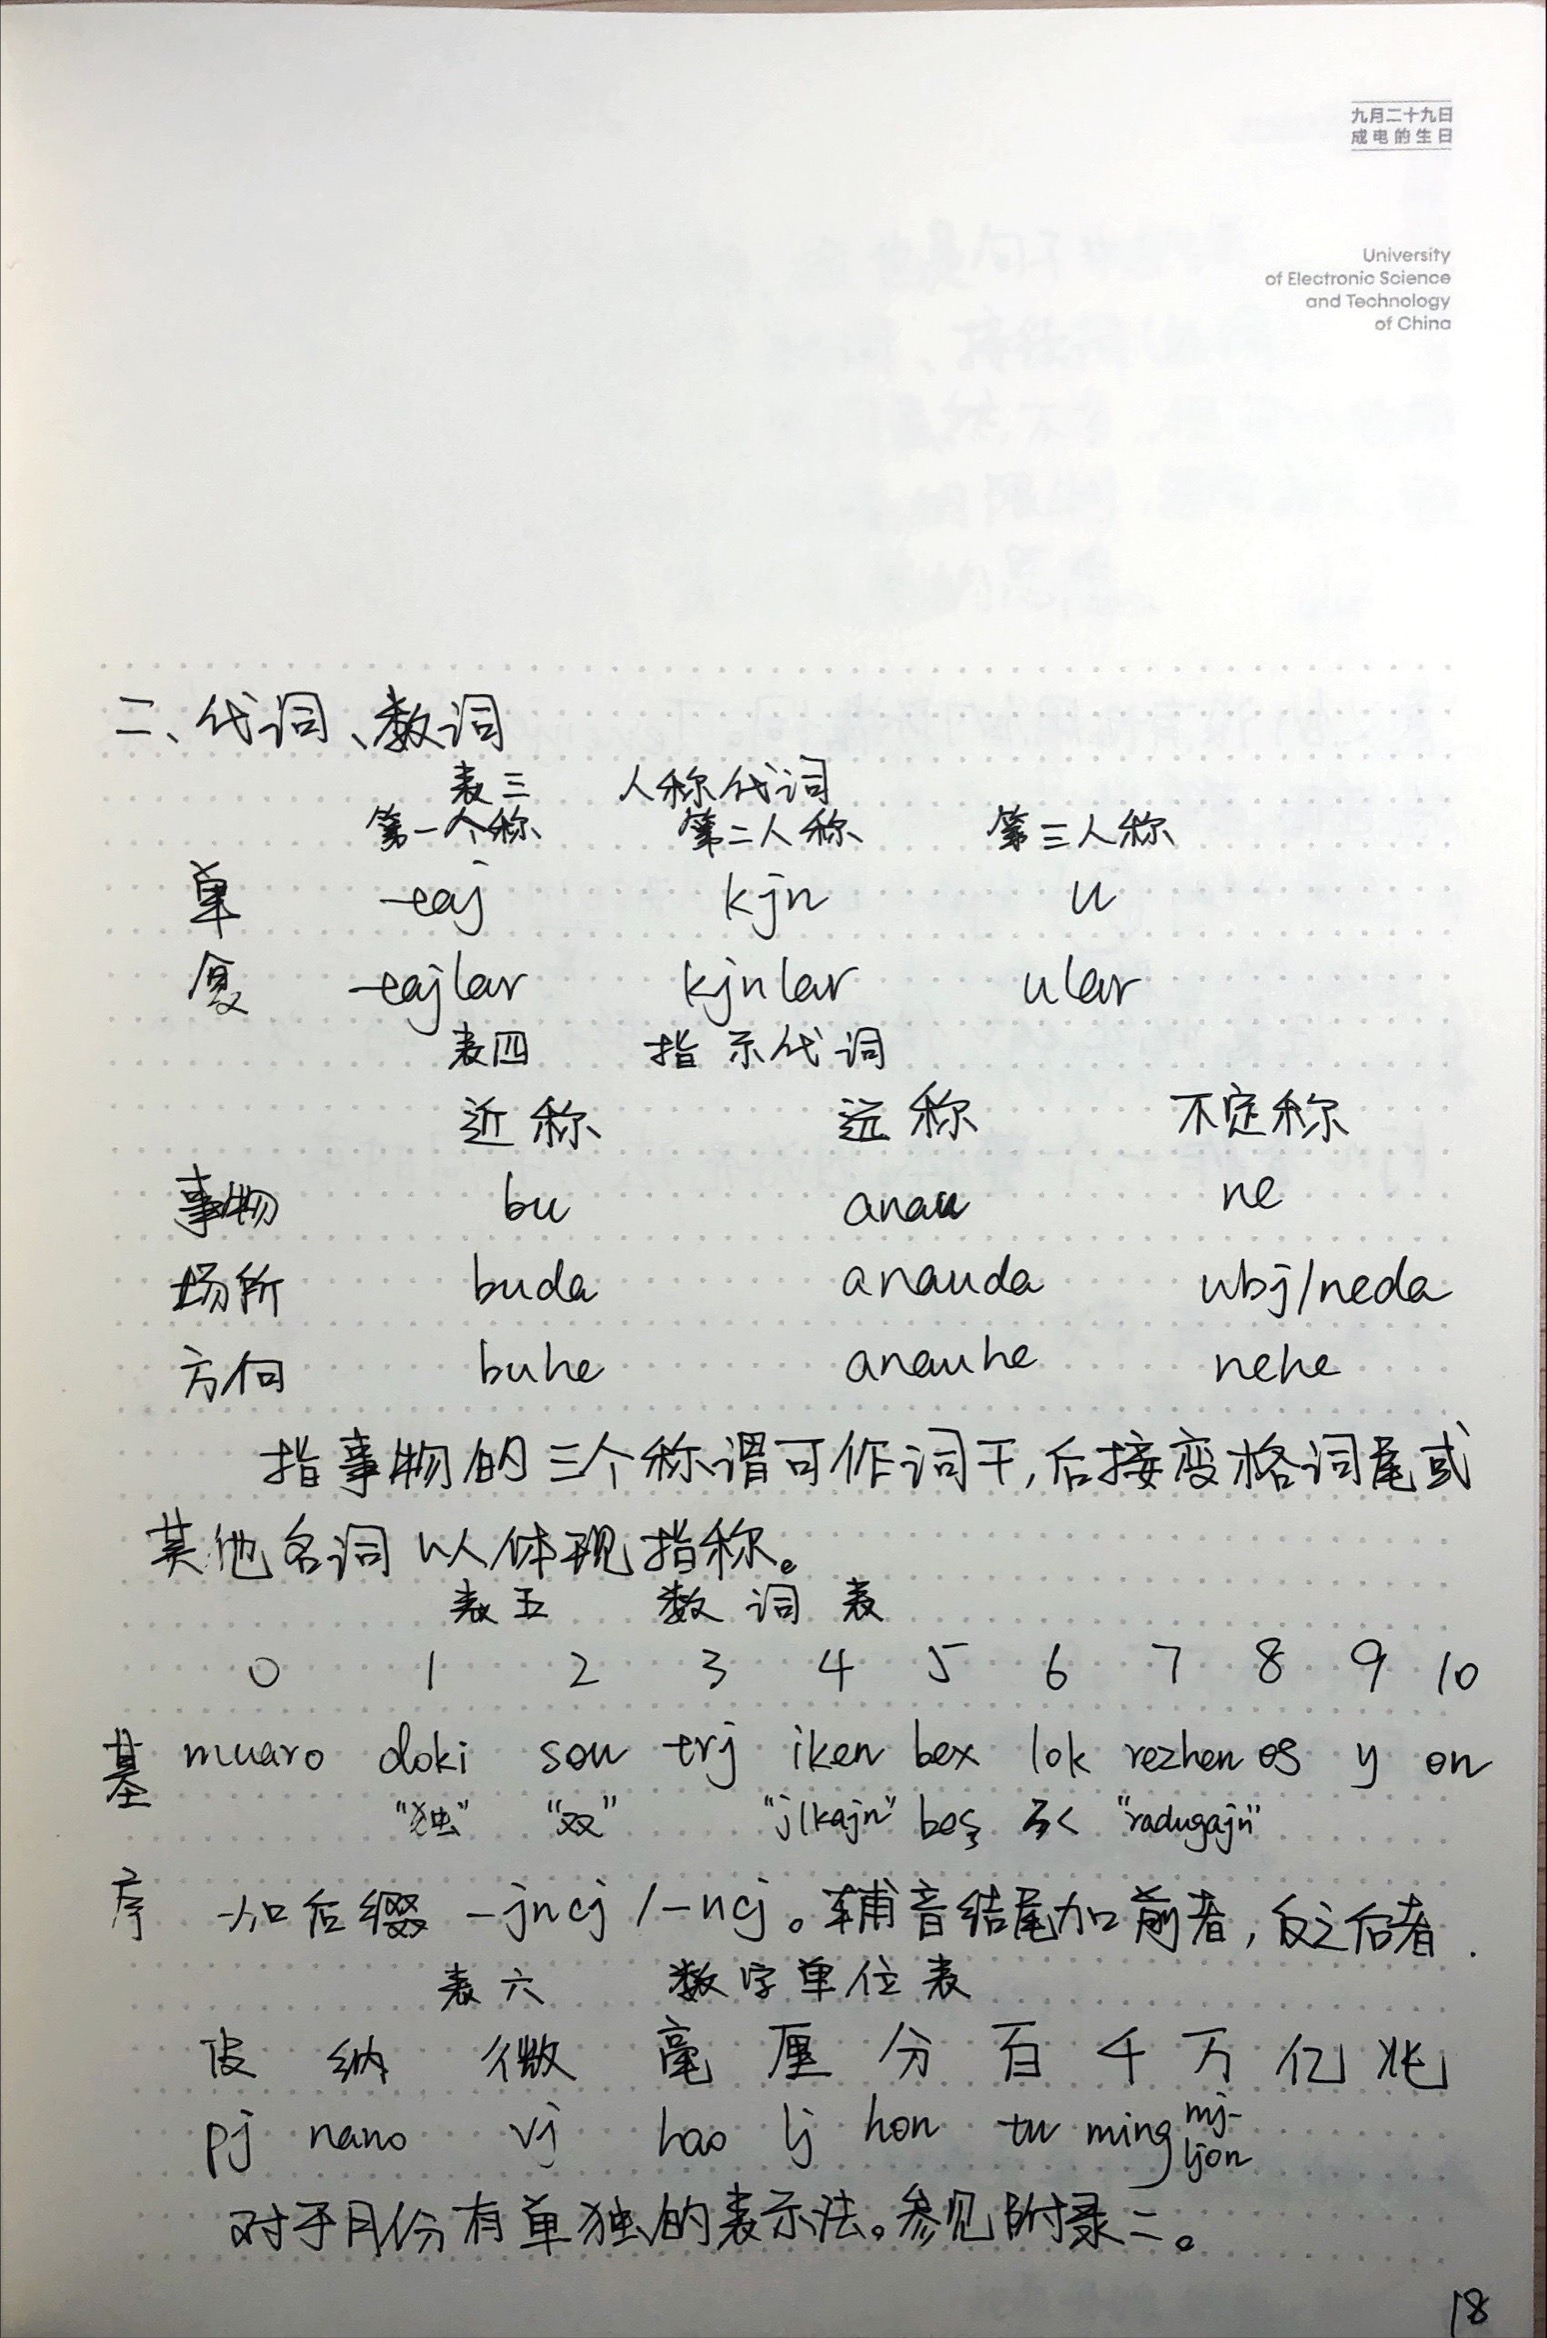 九月二十九日
成电的生日
University
of Electronic Science
and Technology
of China
二、代词、数词
表三 人称代词
第一个称 第二人称 第三人称
单 eaj kjn u
复 eajlar kjnlar ular
表四 指示代词
近称 远称 不定称
事物 bu anau ne
场所 buda anauda ubj/neda
方向 buhe anauhe nehe
指事物的三个称谓可作词干,后接变格词尾或
其他名词以体现指称。
表五 数词表
0 1 2 3 4 5 6 7 8 9 10
基 muaro doki sou trj iken bex lok rezhen os y on
"独" "双" "jlkajn" beş "radugajn"
序 加后缀 -jncj/-ncj。辅音结尾加前者,反之后者.
表六 数字单位表
皮 纳 微 毫 厘 分 百 千 万 亿 兆
pj nano vj hao lj hon tu ming mj-
ljon
对于月份有单独的表示法。参见附录二。
18